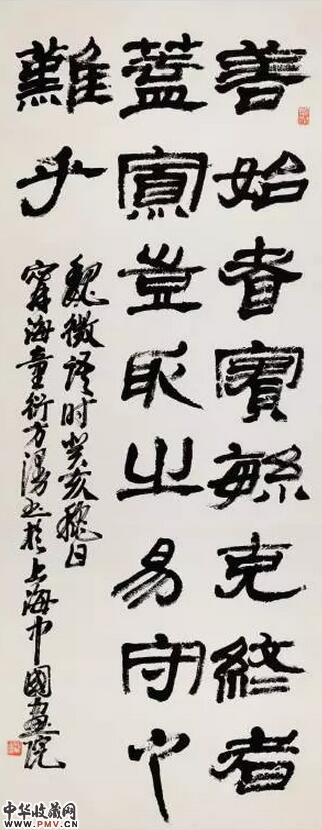 善始者實緐克終者
蓋寡豈取之易守之
難乎
魏徵語時癸亥秋日
甯海童衍方漫书於上海中國畫院
中华收藏网
WWW.PMV.CN